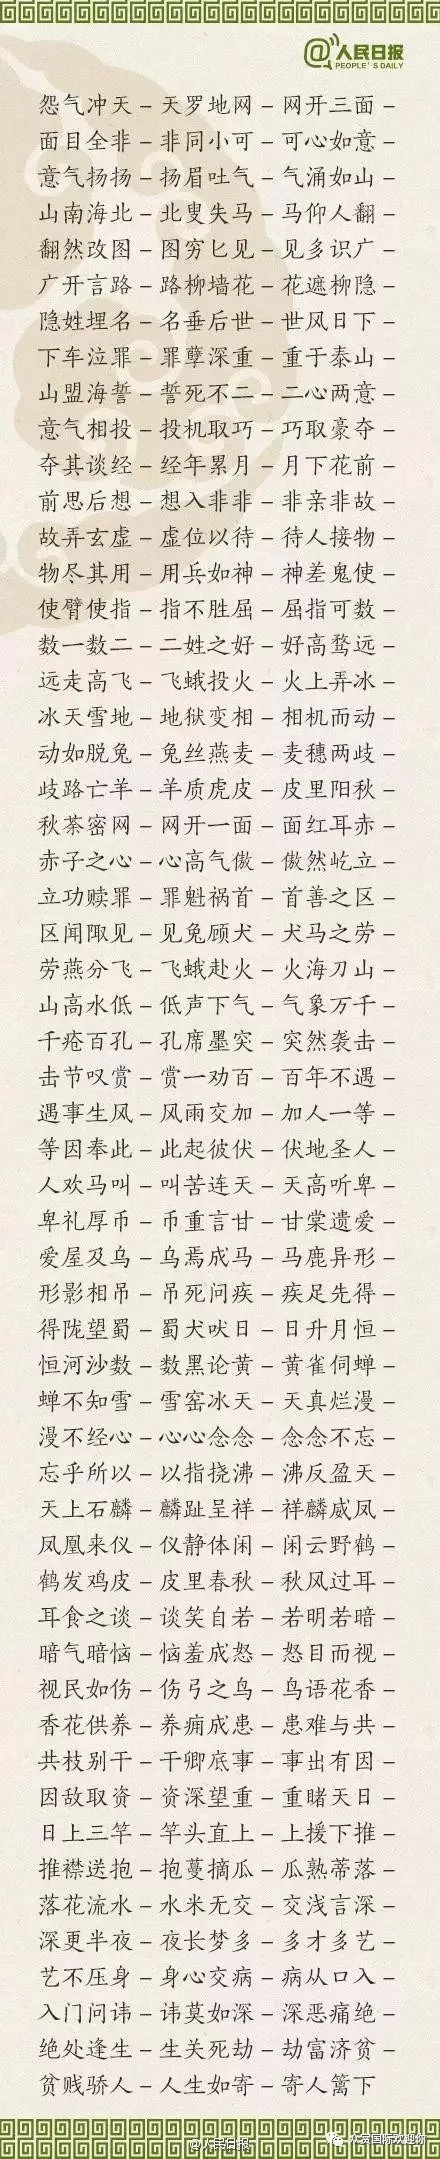 @人民日报
PEOPLE'S DAILY
怨气冲天 – 天罗地网 – 网开三面 –
面目全非 – 非同小可 – 可心如意 –
意气扬扬 – 扬眉吐气 – 气涌如山 –
山南海北 – 北叟失马 – 马仰人翻 –
翻然改图 – 图穷匕见 – 见多识广 –
广开言路 – 路柳墙花 – 花遮柳隐 –
隐姓埋名 – 名垂后世 – 世风日下 –
下车泣罪 – 罪孽深重 – 重于泰山 –
山盟海誓 – 誓死不二 – 二心两意 –
意气相投 – 投机取巧 – 巧取豪夺 –
夺其谈经 – 经年累月 – 月下花前 –
前思后想 – 想入非非 – 非亲非故 –
故弄玄虚 – 虚位以待 – 待人接物 –
物尽其用 – 用兵如神 – 神差鬼使 –
使臂使指 – 指不胜屈 – 屈指可数 –
数一数二 – 二姓之好 – 好高骛远 –
远走高飞 – 飞蛾投火 – 火上弄冰 –
冰天雪地 – 地狱变相 – 相机而动 –
动如脱兔 – 兔丝燕麦 – 麦穗两歧 –
歧路亡羊 – 羊质虎皮 – 皮里阳秋 –
秋荼密网 – 网开一面 – 面红耳赤 –
赤子之心 – 心高气傲 – 傲然屹立 –
立功赎罪 – 罪魁祸首 – 首善之区 –
区闻陬见 – 见兔顾犬 – 犬马之劳 –
劳燕分飞 – 飞蛾赴火 – 火海刀山 –
山高水低 – 低声下气 – 气象万千 –
千疮百孔 – 孔席墨突 – 突然袭击 –
击节叹赏 – 赏一劝百 – 百年不遇 –
遇事生风 – 风雨交加 – 加人一等 –
等因奉此 – 此起彼伏 – 伏地圣人 –
人欢马叫 – 叫苦连天 – 天高听卑 –
卑礼厚币 – 币重言甘 – 甘棠遗爱 –
爱屋及乌 – 乌焉成马 – 马鹿异形 –
形影相吊 – 吊死问疾 – 疾足先得 –
得陇望蜀 – 蜀犬吠日 – 日升月恒 –
恒河沙数 – 数黑论黄 – 黄雀伺蝉 –
蝉不知雪 – 雪窑冰天 – 天真烂漫 –
漫不经心 – 心心念念 – 念念不忘 –
忘乎所以 – 以指挠沸 – 沸反盈天 –
天上石麟 – 麟趾呈祥 – 祥麟威凤 –
凤凰来仪 – 仪静体闲 – 闲云野鹤 –
鹤发鸡皮 – 皮里春秋 – 秋风过耳 –
耳食之谈 – 谈笑自若 – 若明若暗 –
暗气暗恼 – 恼羞成怒 – 怒目而视 –
视民如伤 – 伤弓之鸟 – 鸟语花香 –
香花供养 – 养痈成患 – 患难与共 –
共枝别干 – 干卿底事 – 事出有因 –
因敌取资 – 资深望重 – 重睹天日 –
日上三竿 – 竿头直上 – 上援下推 –
推襟送抱 – 抱蔓摘瓜 – 瓜熟蒂落 –
落花流水 – 水米无交 – 交浅言深 –
深更半夜 – 夜长梦多 – 多才多艺 –
艺不压身 – 身心交病 – 病从口入 –
入门问讳 – 讳莫如深 – 深恶痛绝 –
绝处逢生 – 生关死劫 – 劫富济贫 –
贫贱骄人 – 人生如寄 – 寄人篱下
@人民日报
众赏国际欢迎你